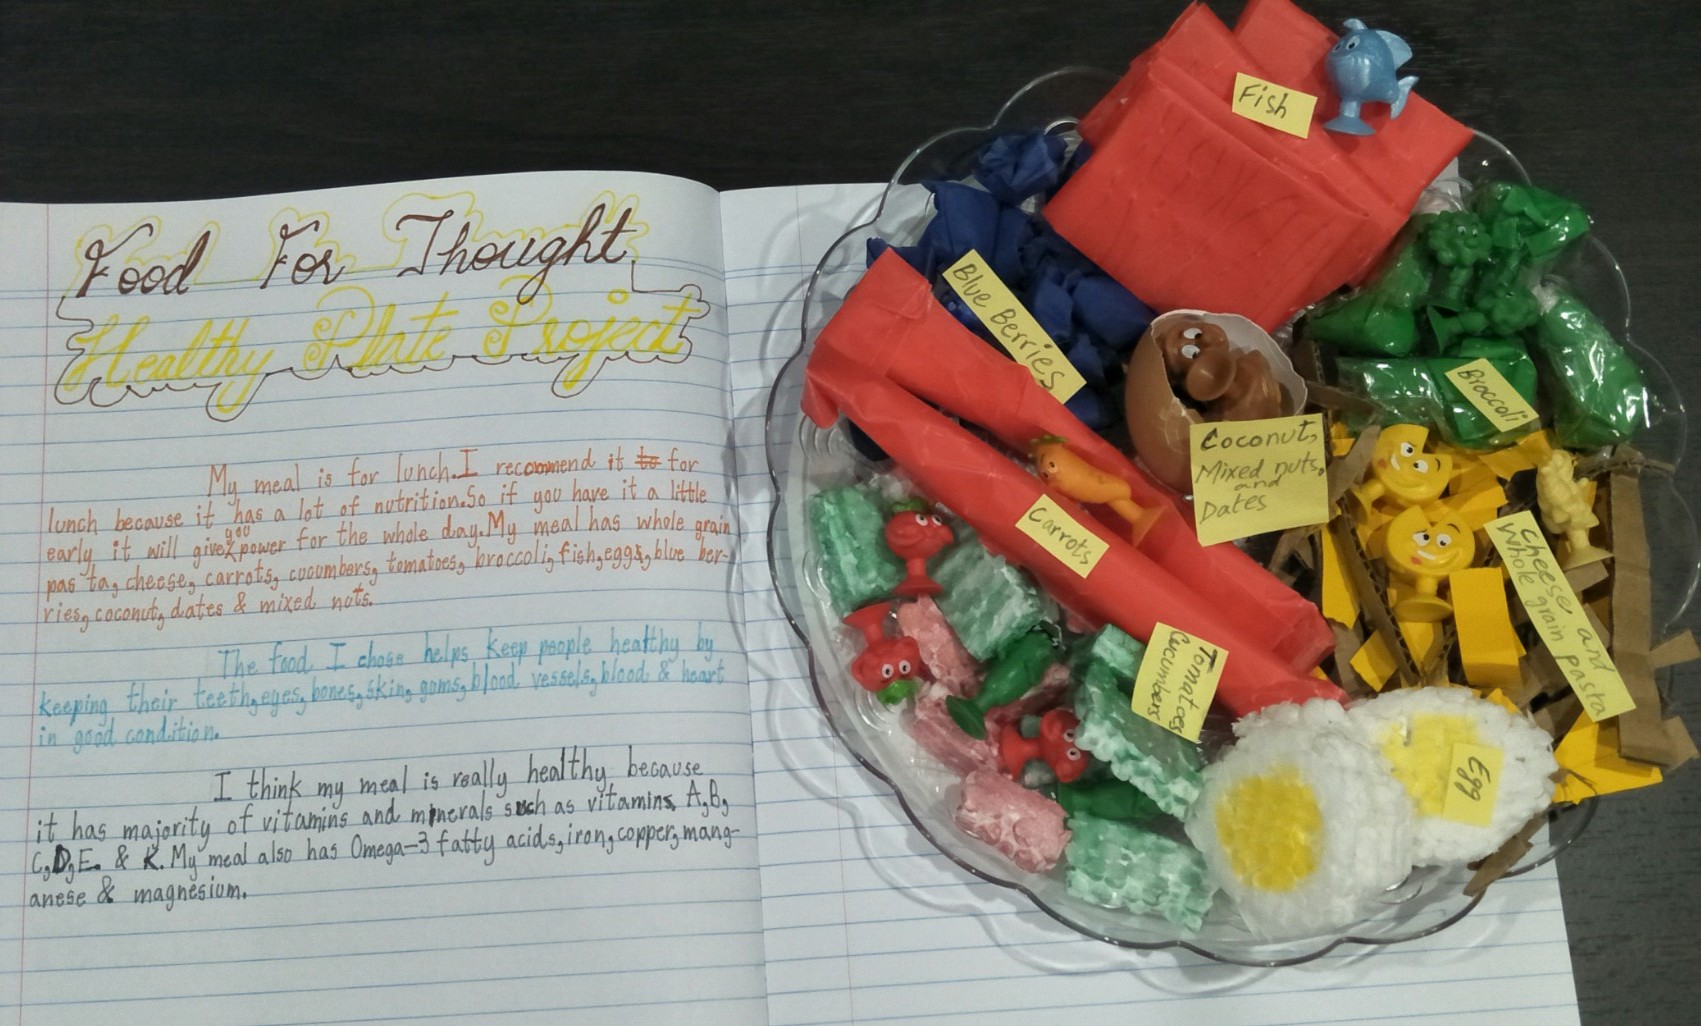 Food For Thought
Healthy Plate Project
My meal is for lunch. I recommend it to for
lunch because it has a lot of nutrition. So if you have it a little
early it will give you power for the whole day. My meal has whole grain
pas ta, cheese, carrots, cucumbers, tomatoes, broccoli, fish, eggs, blue ber-
ries, coconut, dates & mixed nuts.
The food I chose helps keep people healthy by
keeping their teeth, eyes, bones, skin, goms, blood vessels, blood & heart
in good condition.
I think my meal is really healthy because
it has majority of vitamins and minerals such as vitamins, A, B,
C, D, E. & K. My meal also has Omega-3 fatty acids, iron, copper, mang-
anese & magnesium.
Fish
Blue Berries
Broccoli
Coconut,
Mixed nuts,
and
Dates
Carrots
Cheese and
Whole grain pasta
Tomatoes
Cucumbers
Egg